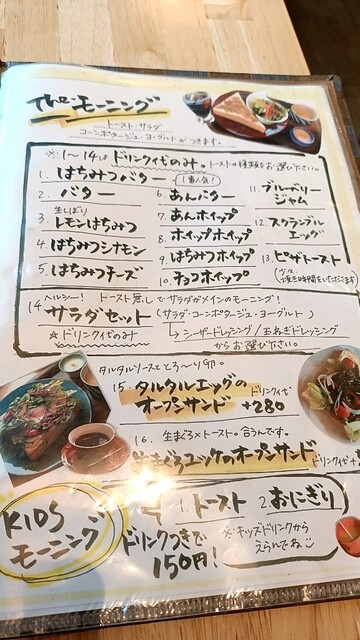 The モーニング
トースト・サラダ
コーンポタージュ・ヨーグルト がつきます。
※1〜14は ドリンク代のみ。トーストの種類をお選び下さい。
1. はちみつバター
1番人気!
2. バター
生しぼり
3. レモンはちみつ
4. はちみつシナモン
5. はちみつチーズ
6. あんバター
7. あんホイップ
8. ホイップホイップ
9. はちみつホイップ
10. チョコホイップ
11. ブルーベリー
ジャム
12. スクランブル
エッグ
13. ピザトースト
お時間をいただきます
ヘルシー! トースト無しでサラダがメインのモーニング!
14. サラダセット
(サラダ・コーンポタージュ・ヨーグルト)
☆ドリンク代のみ
シーザードレッシング/玉ねぎドレッシング
からお選び下さい。
タルタルソースととろ〜り卵。
15. タルタルエッグの
オープンサンド
ドリンク代
+280
16. 生まぐろ×トースト。合うんです。
生まぐろユッケのオープンサンド
ドリンク代+
KIDS
モーニング
1. トースト 2. おにぎり
ドリンクつきで
150円!
※キッズドリンクから
えらんでね